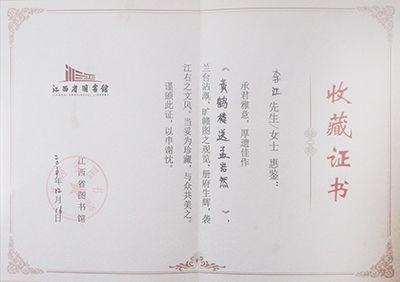 收藏证书
李江 先生/女士 惠鉴：
承君雅意，厚遗佳作
《黄鹤楼送孟浩然》，
兰台沾溉。旷赣图之观览，册府生辉，袭
江右之文风。当妥为珍藏，与众共美之。
谨颁此证，以申谢忱。
江西省图书馆
JIANGXI PROVINCIAL LIBRARY
江西省图书馆
年12月 日